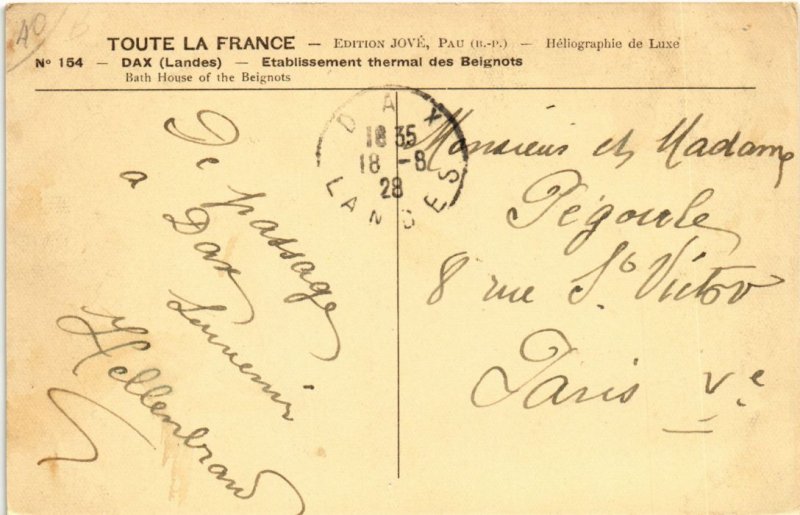 40
TOUTE LA FRANCE — EDITION JOVÉ, PAU (B.-P.) — Héliographie de Luxe
Nº 154 — DAX (Landes) — Etablissement thermal des Beignots
Bath House of the Beignots
De passage
a Dax
Souvenir
Hellenbrand
DAX
18 35
18 -8
28
LANDES
Monsieur et Madame
Pégoule
8 rue St Victor
Paris Ve